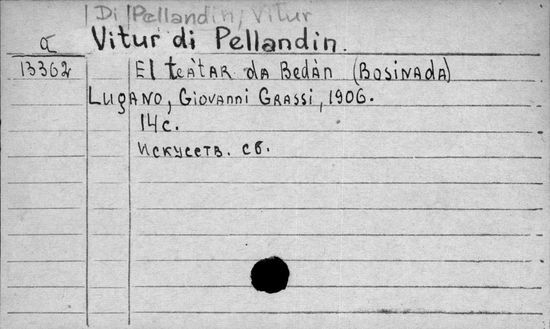 Di Pellandin, Vitur
a Vitur di Pellandin.
13362 El teàtar da Bedàn (Bosinada)
Lugano, Giovanni Grassi, 1906.
14 с.
Искусств. сб.